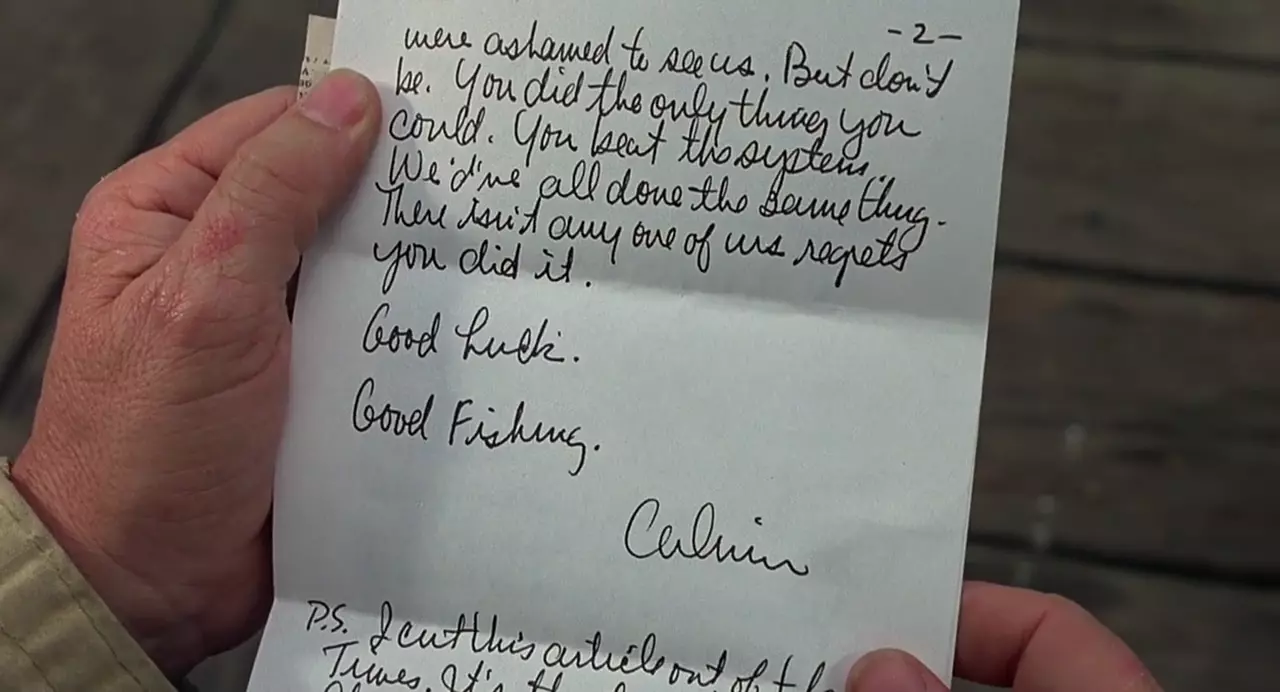 -2-
were ashamed to see us. But don't
be. You did the only thing you
could. You beat the system.
We'd've all done the same thing.
There isn't any one of us regrets
you did it.
Good Luck.
Good Fishing.
Calvin
P.S. I cut this article out of the
Times. It's the